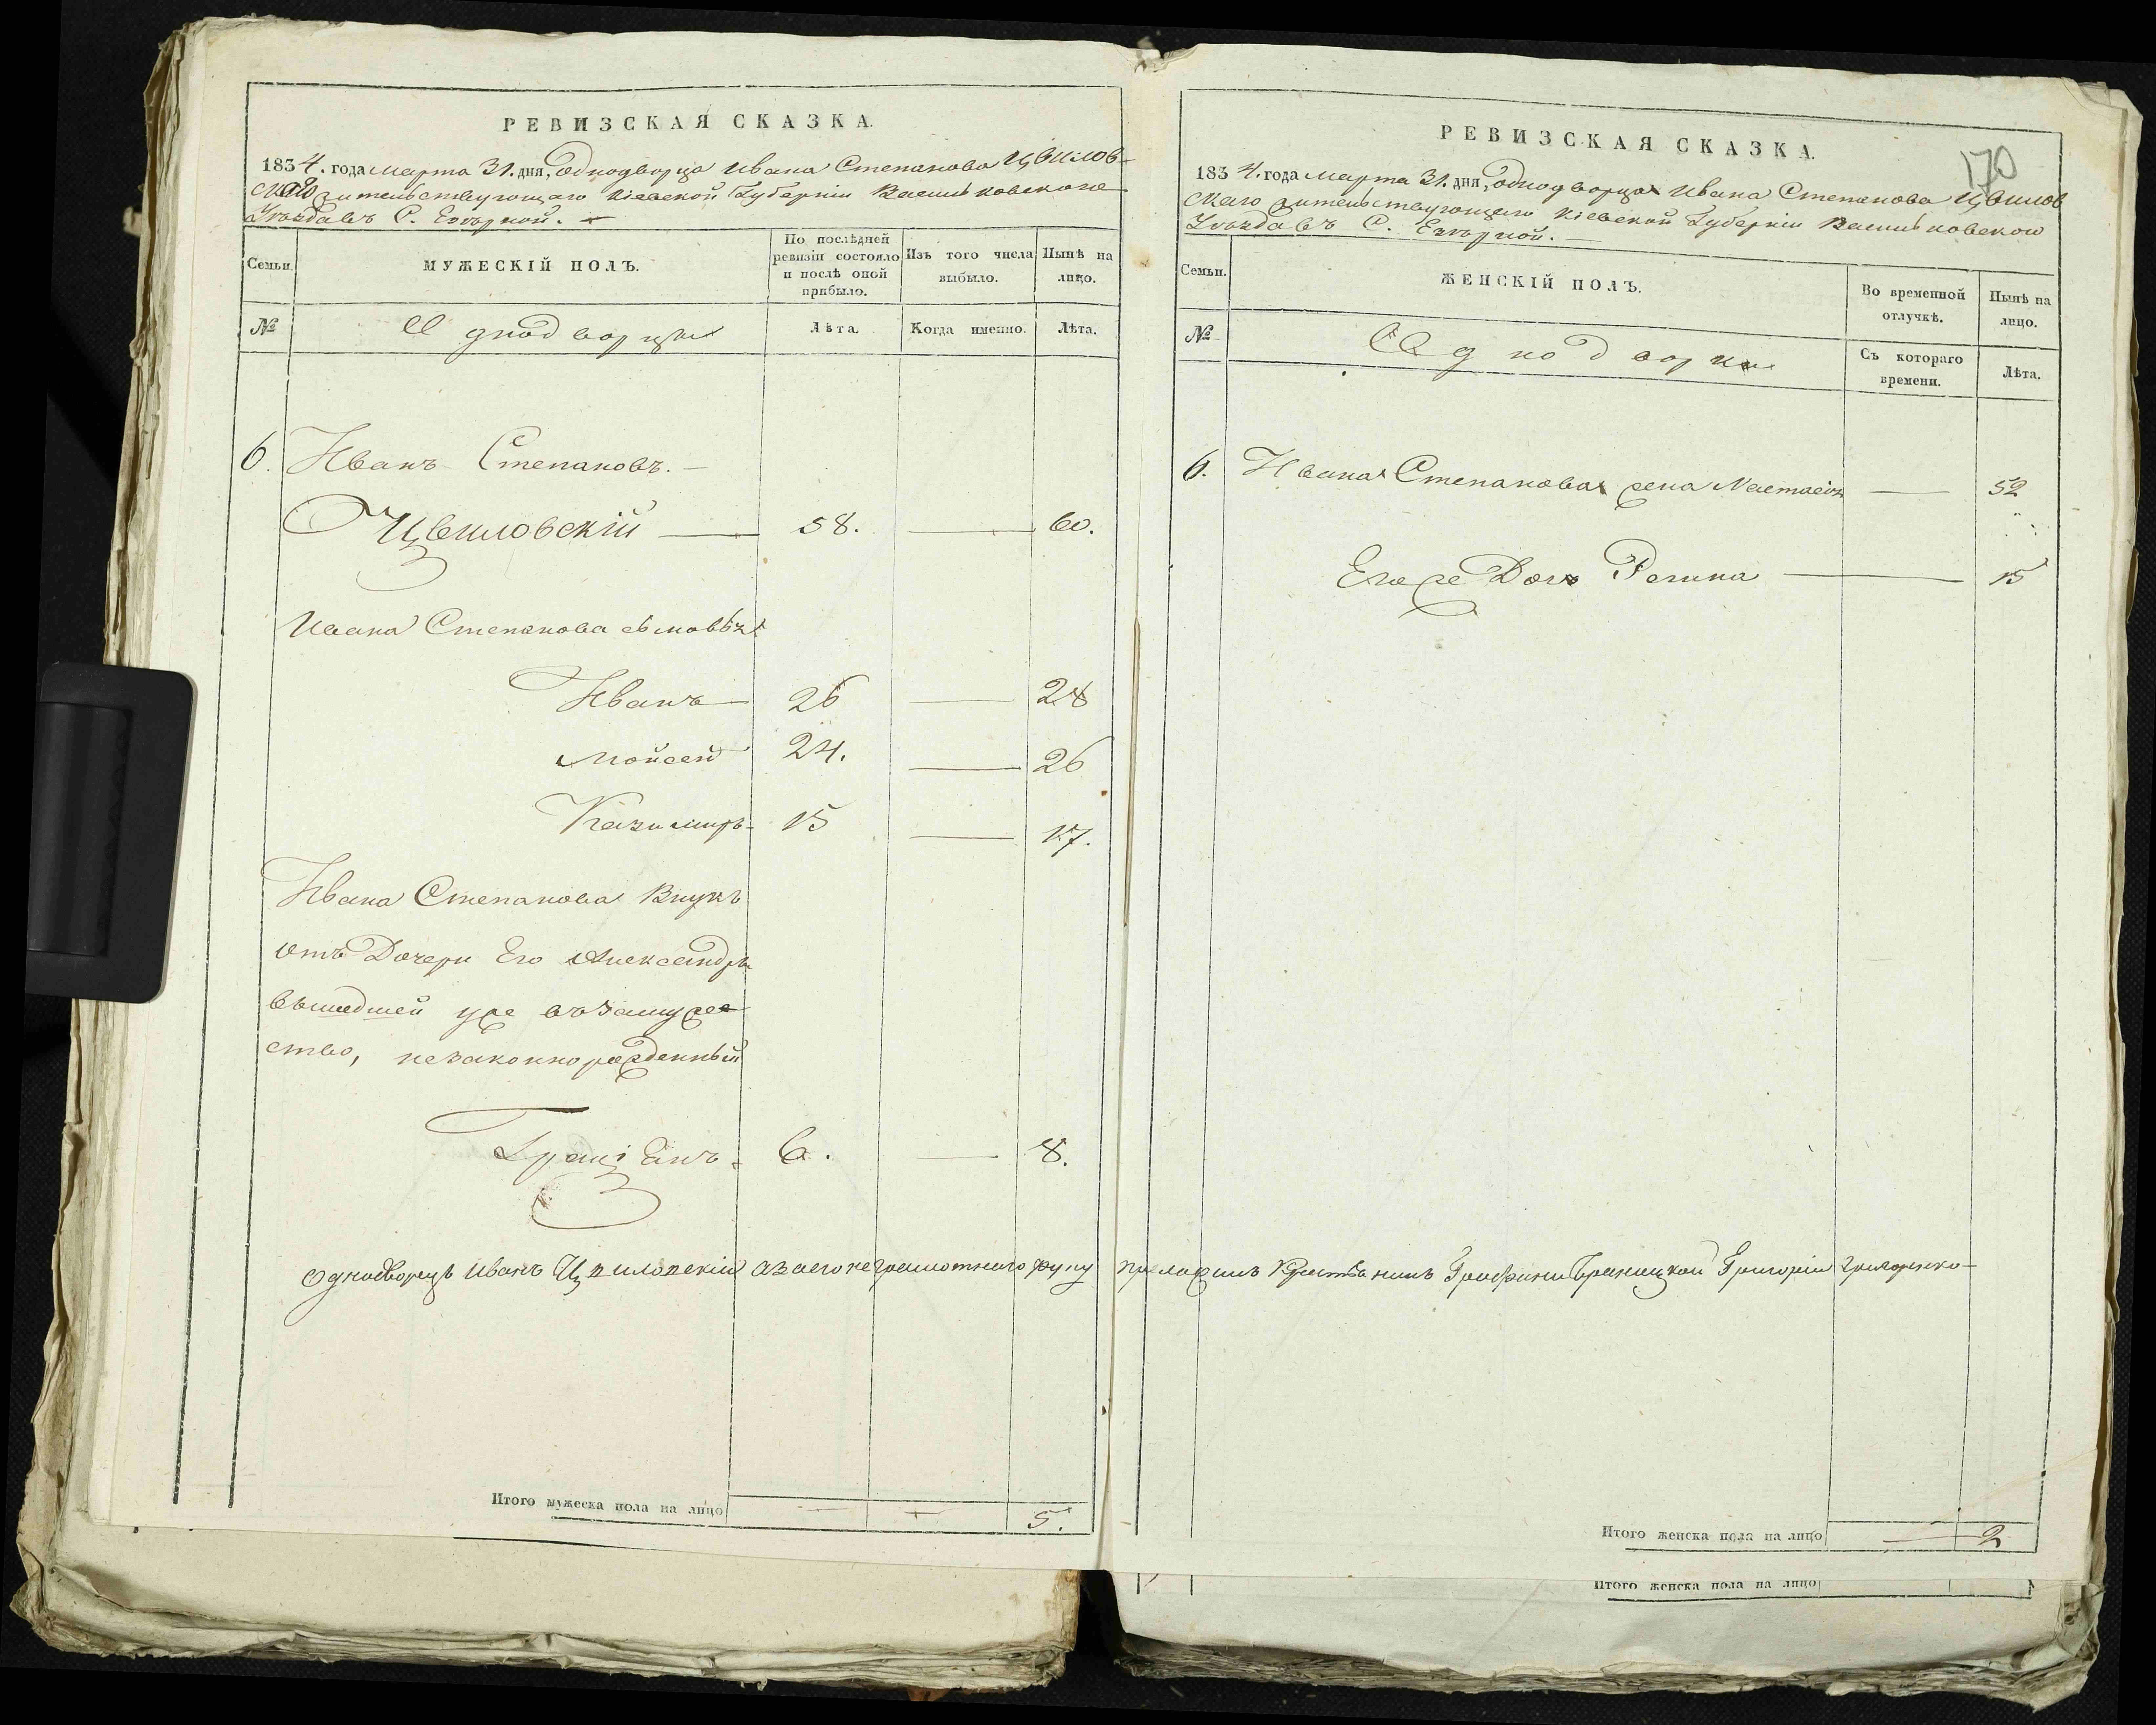 РЕВИЗСКАЯ СКАЗКА.
1834. года марта 31. дня, Однодворца Ивана Степанова Цвилов-
скаго жительствующаго Кіевской Губерніи Васильковскаго
Уѣзда въ С. Езѣрной.
Семьи.
МУЖЕСКІЙ ПОЛЪ.
По послѣдней ревизіи состояло и послѣ оной прибыло.
Изъ того числа выбыло.
Нынѣ на лицо.
№
Однодворцы
Лѣта.
Когда именно.
Лѣта.
6. Иванъ Степановъ. —
Цвиловскій — 58. — 60.
Ивана Степанова сыновья
Иванъ — 26 — 28
Мойсей 24. — 26
Казимиръ - 15 — 17.
Ивана Степанова Внукъ
отъ Дочери Его Александры
вышедшей уже въ замуже
ство, незаконнорожденный
Граціанъ - 6. — 8.
Однодворецъ Иванъ Цвиловскій а за его неграмотнаго руку приложилъ Крестьянинъ Графини Браницкой Григорій Григоренко-
Итого мужеска пола на лицо — — 5.
170
РЕВИЗСКАЯ СКАЗКА.
1834. года марта 31. дня, Однодворца Ивана Степанова Цвилов
скаго жительствующаго Кіевской Губерніи Васильковскаго
Уѣзда въ С. Езѣрной. —
Семьи.
ЖЕНСКІЙ ПОЛЪ.
Во временной отлучкѣ.
Нынѣ на лицо.
№
Однодворки
Съ котораго времени.
Лѣта.
6. Ивана Степанова жена Настасія — 52
Его же Дочь Регина — 15
Итого женска пола на лицо — 2
Итого женска пола на лицо